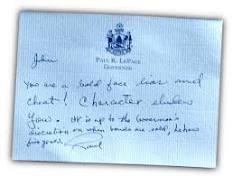 PAUL R. LEPAGE
GOVERNOR
John
You are a bald face liar and
cheat! Character eludes
you. It is up to the Governor's
discretion on when bonds are sold,
five years.
Paul